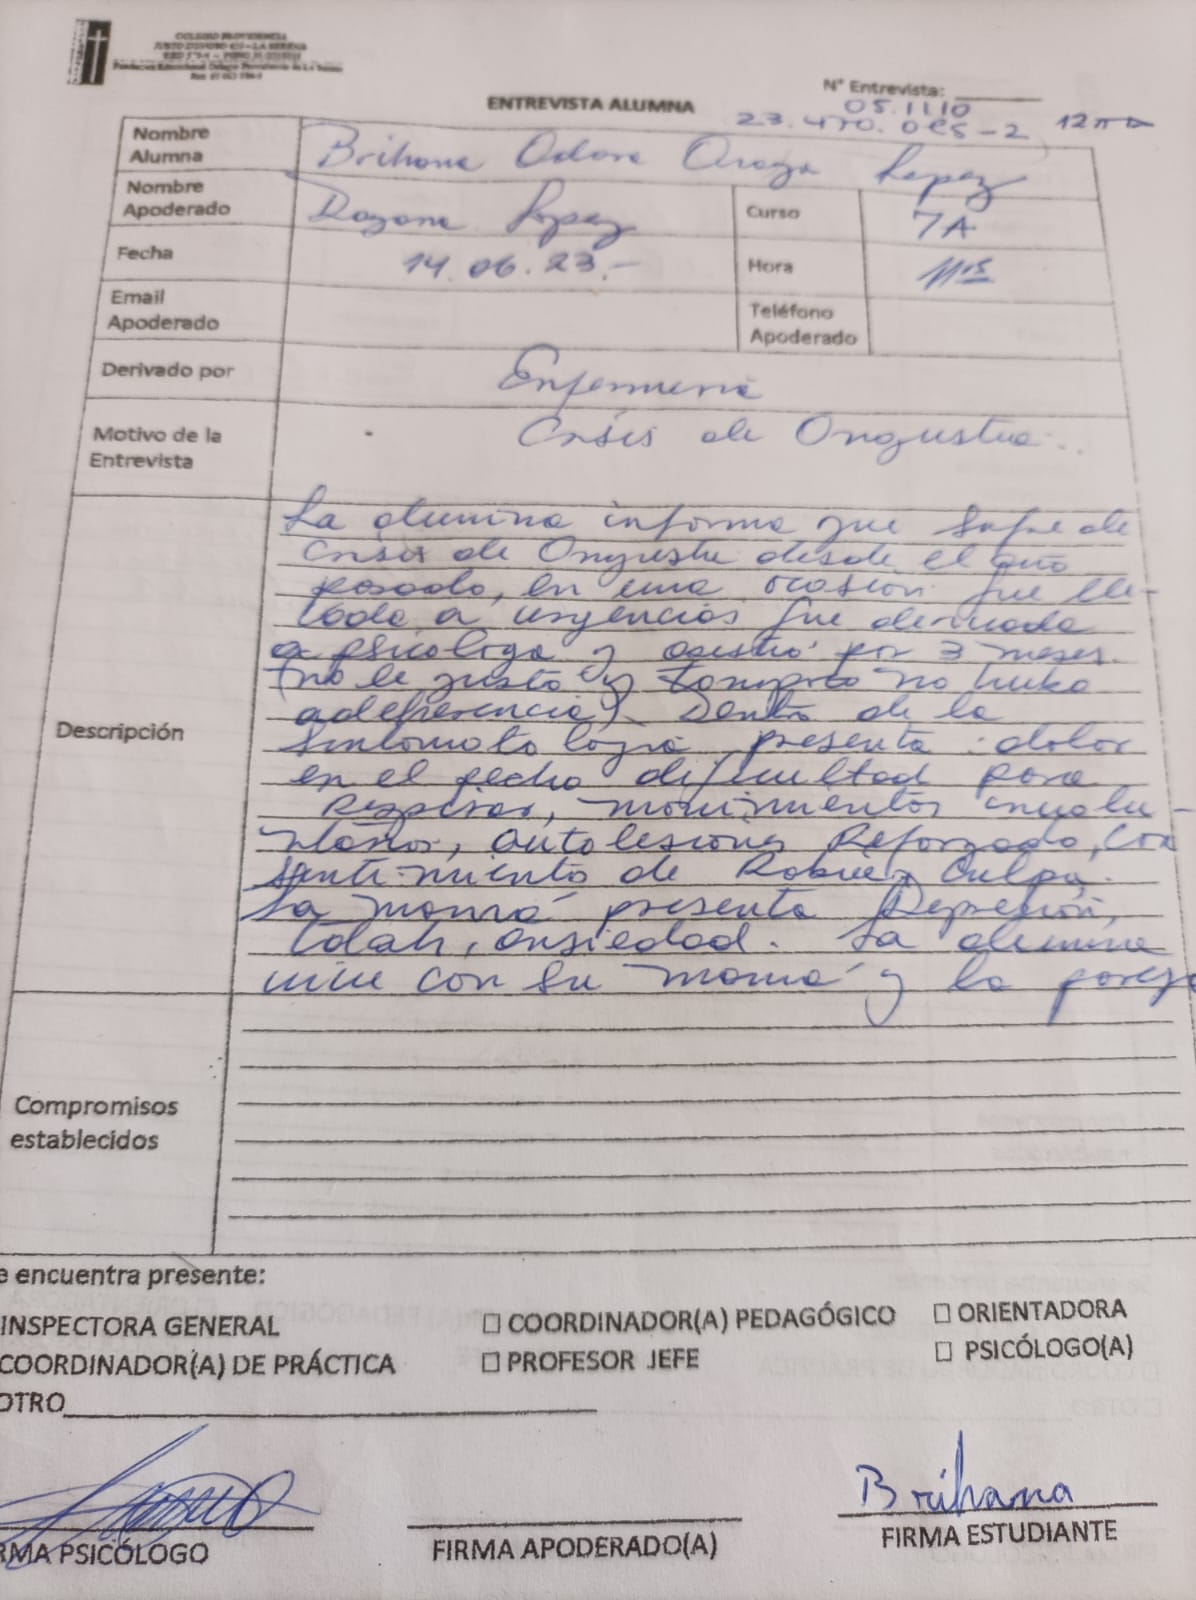 COLEGIO PROVIDENCIA
ENTREVISTA ALUMNA
N° Entrevista:
05.11.10
12
Nombre Alumna Brihana Lopez
Nombre Apoderado Lopez
Curso 7A
Fecha 14.06.23.-
Hora 11:15
Email Apoderado
Teléfono Apoderado
Derivado por Enfermeria
Motivo de la Entrevista Crisis de Angustia.
Descripción
La alumna informa que sufre de
crisis de Angustia desde el año
pasado, en una ocasión fue lle-
vada a urgencias fue derivada
a psicologa y asistió por 3 meses.
(no le gustó y tampoco no hubo
). Dentro de la
sintomatología presenta: dolor
en el pecho dificultad para
respirar, movimientos involu-
ntarios, autolesiones Reforzado, con
sentimiento de Rabia y Culpa.
La mamá presenta Depresión,
tdah, ansiedad. La alumna
vive con su mamá y la pareja
Compromisos establecidos
e encuentra presente:
INSPECTORA GENERAL
☐ COORDINADOR(A) PEDAGÓGICO
☐ ORIENTADORA
COORDINADOR(A) DE PRÁCTICA
☐ PROFESOR JEFE
☐ PSICÓLOGO(A)
OTRO
Brihana
RMA PSICÓLOGO
FIRMA APODERADO(A)
FIRMA ESTUDIANTE